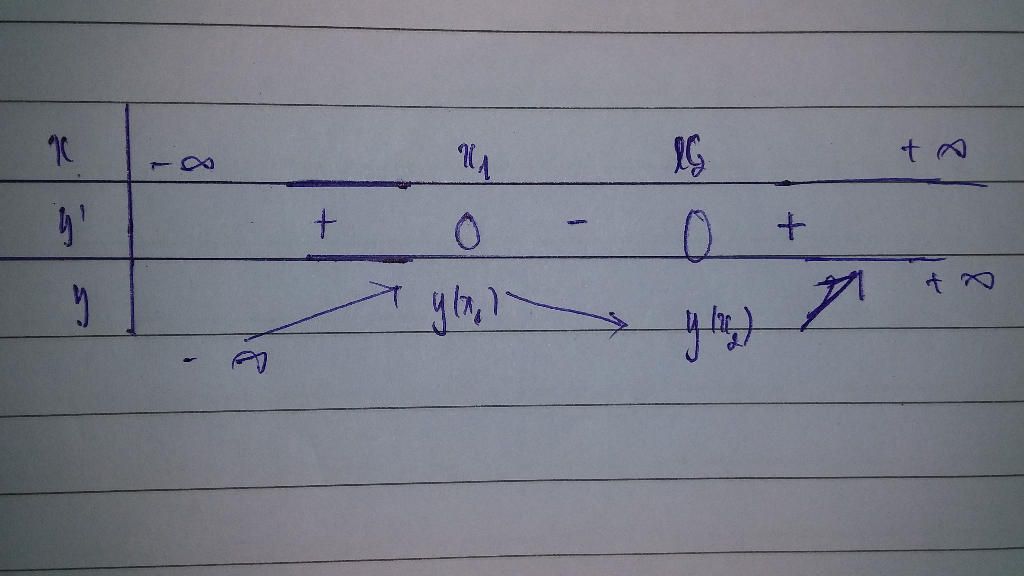 x - ∞ x₁ x₂ + ∞
y' + 0 - 0 +
y y(x₁) y(x₂) + ∞
- ∞